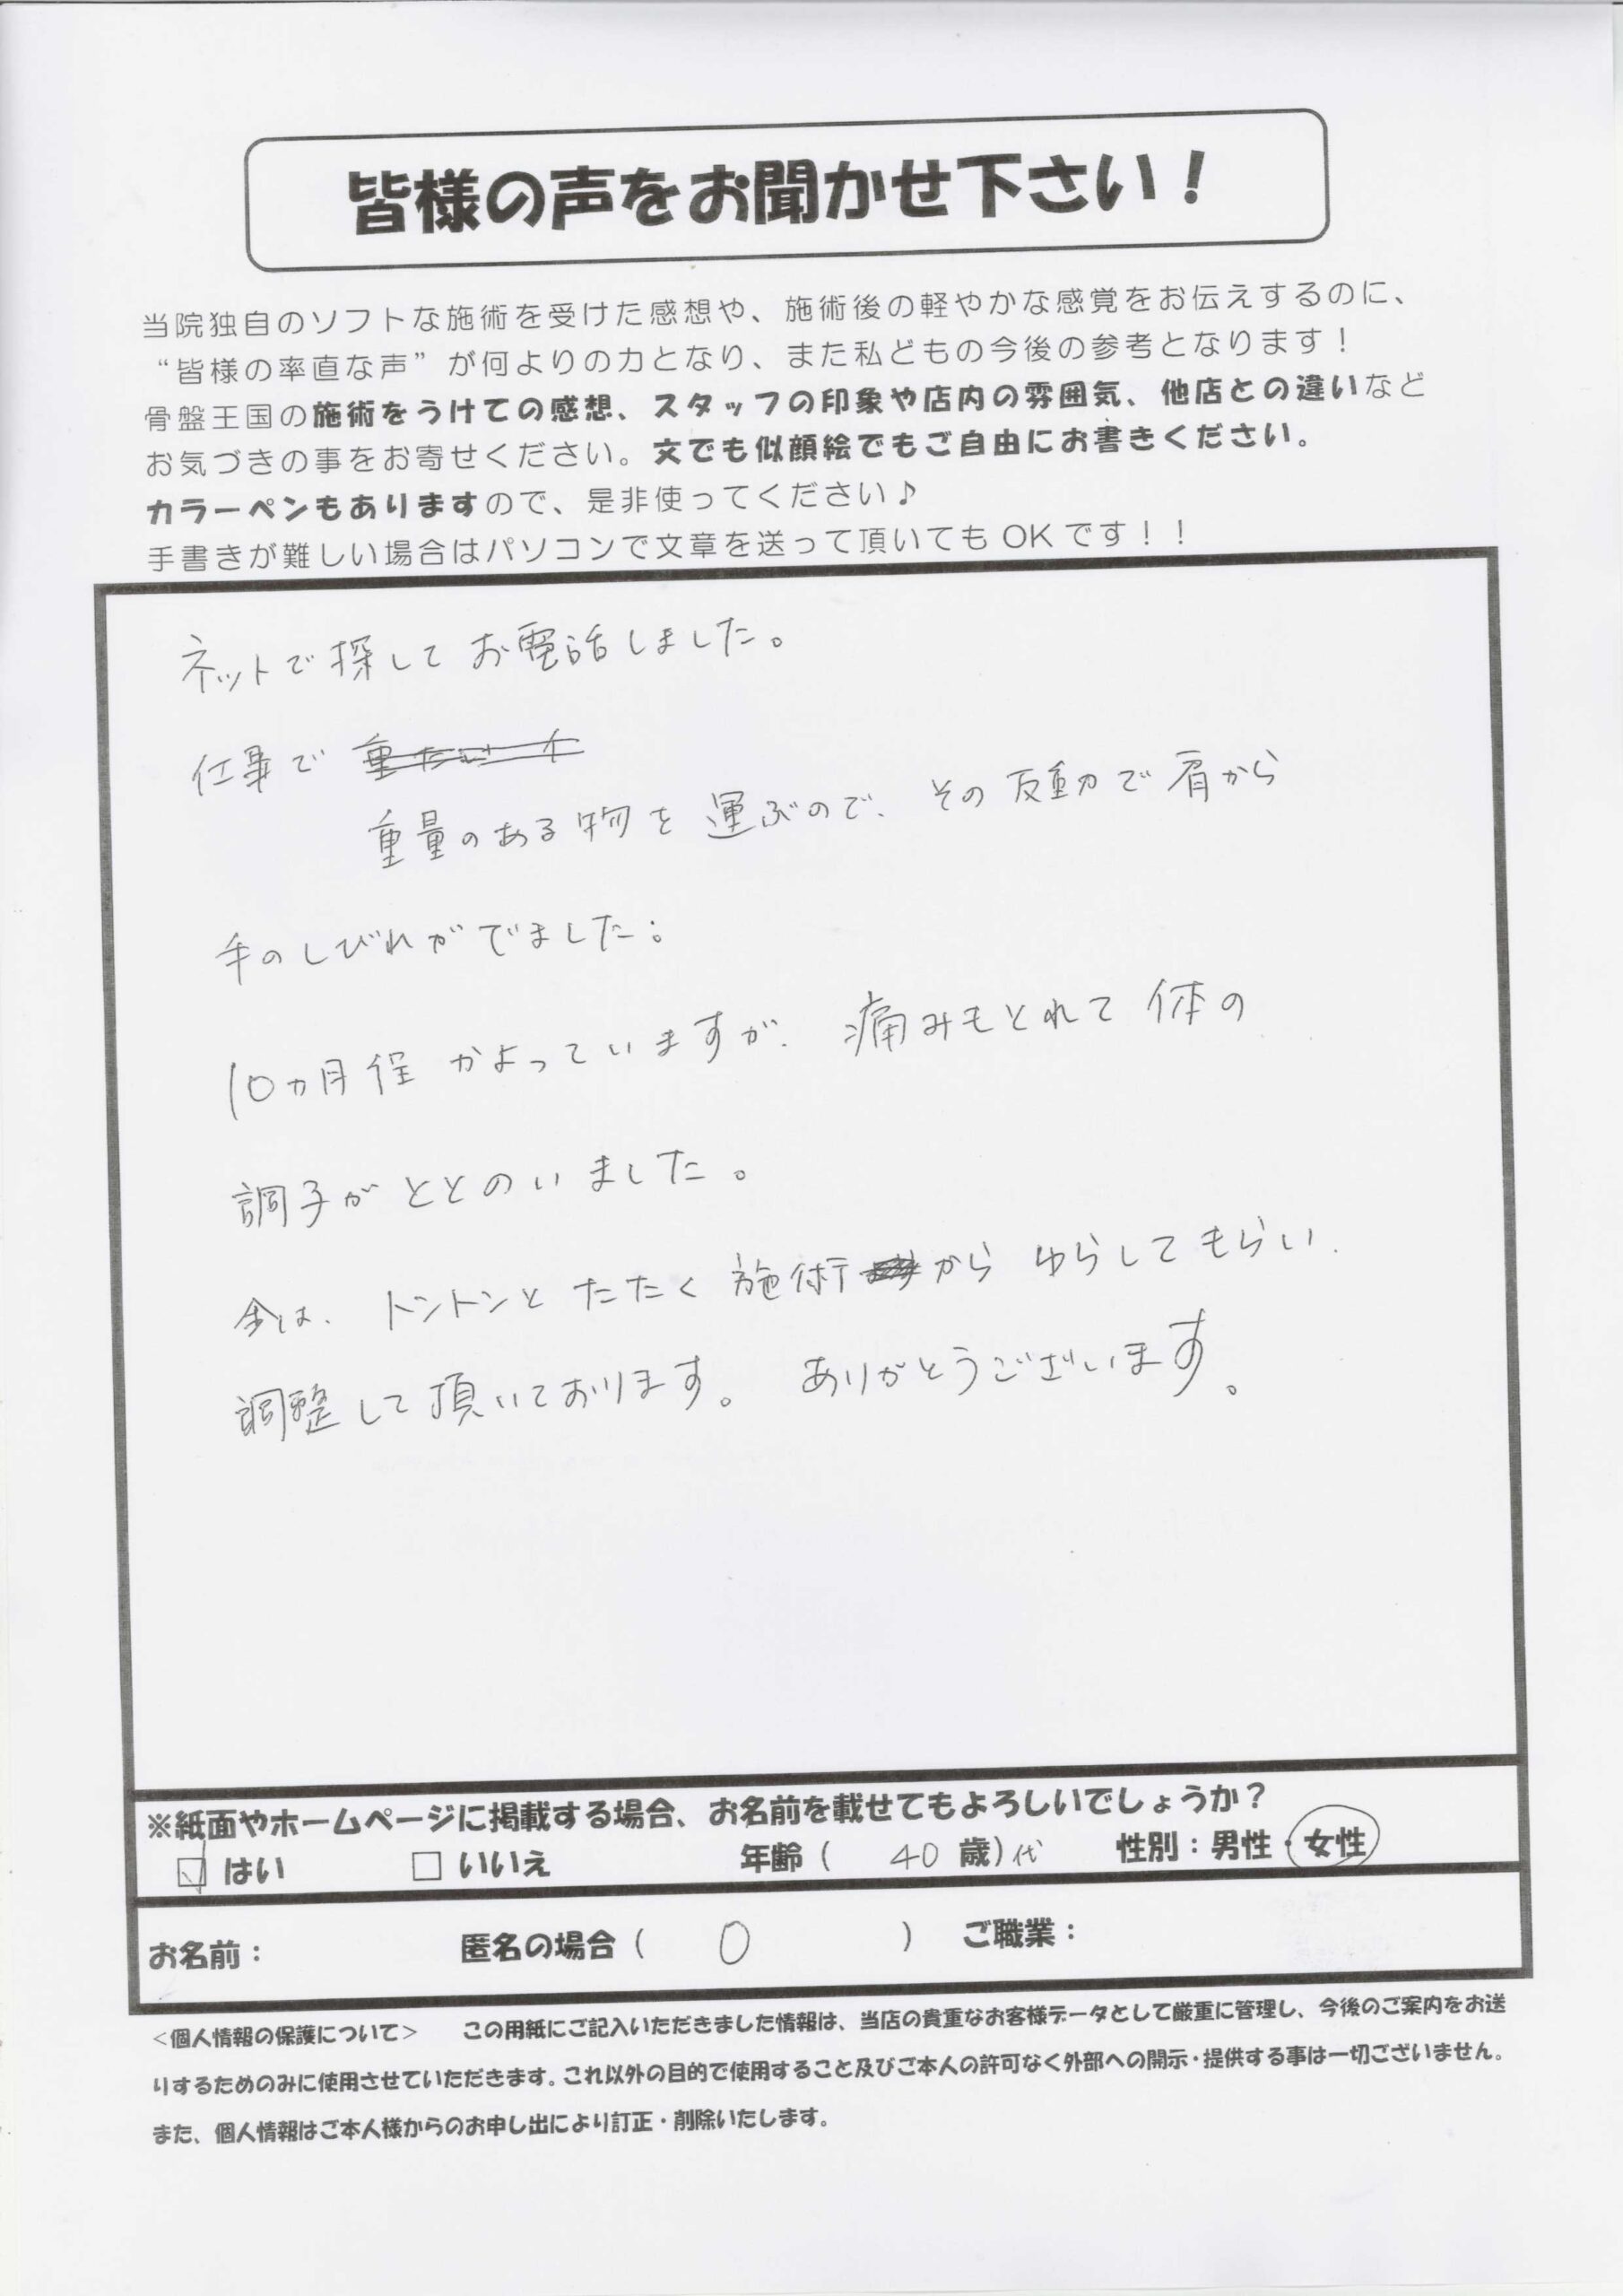 皆様の声をお聞かせ下さい！
当院独自のソフトな施術を受けた感想や、施術後の軽やかな感覚をお伝えするのに、
“皆様の率直な声”が何よりの力となり、また私どもの今後の参考となります！
骨盤王国の施術をうけての感想、スタッフの印象や店内の雰囲気、他店との違いなど
お気づきの事をお寄せください。文でも似顔絵でもご自由にお書きください。
カラーペンもありますので、是非使ってください♪
手書きが難しい場合はパソコンで文章を送って頂いてもOKです！！
ネットで探してお電話しました。
仕事で
重量のある物を運ぶので、その反動で肩から
手のしびれがでました。
10ヵ月程かよっていますが、痛みもとれて体の
調子がととのいました。
今は、トントンとたたく施術からゆらしてもらい、
調整して頂いております。ありがとうございます。
※紙面やホームページに掲載する場合、お名前を載せてもよろしいでしょうか？
☑ はい □ いいえ 年齢（ 40 歳）代 性別：男性・女性
お名前： 匿名の場合（ O ） ご職業：
＜個人情報の保護について＞ この用紙にご記入いただきました情報は、当店の貴重なお客様データとして厳重に管理し、今後のご案内をお送
りするためのみに使用させていただきます。これ以外の目的で使用すること及びご本人の許可なく外部への開示・提供する事は一切ございません。
また、個人情報はご本人様からのお申し出により訂正・削除いたします。